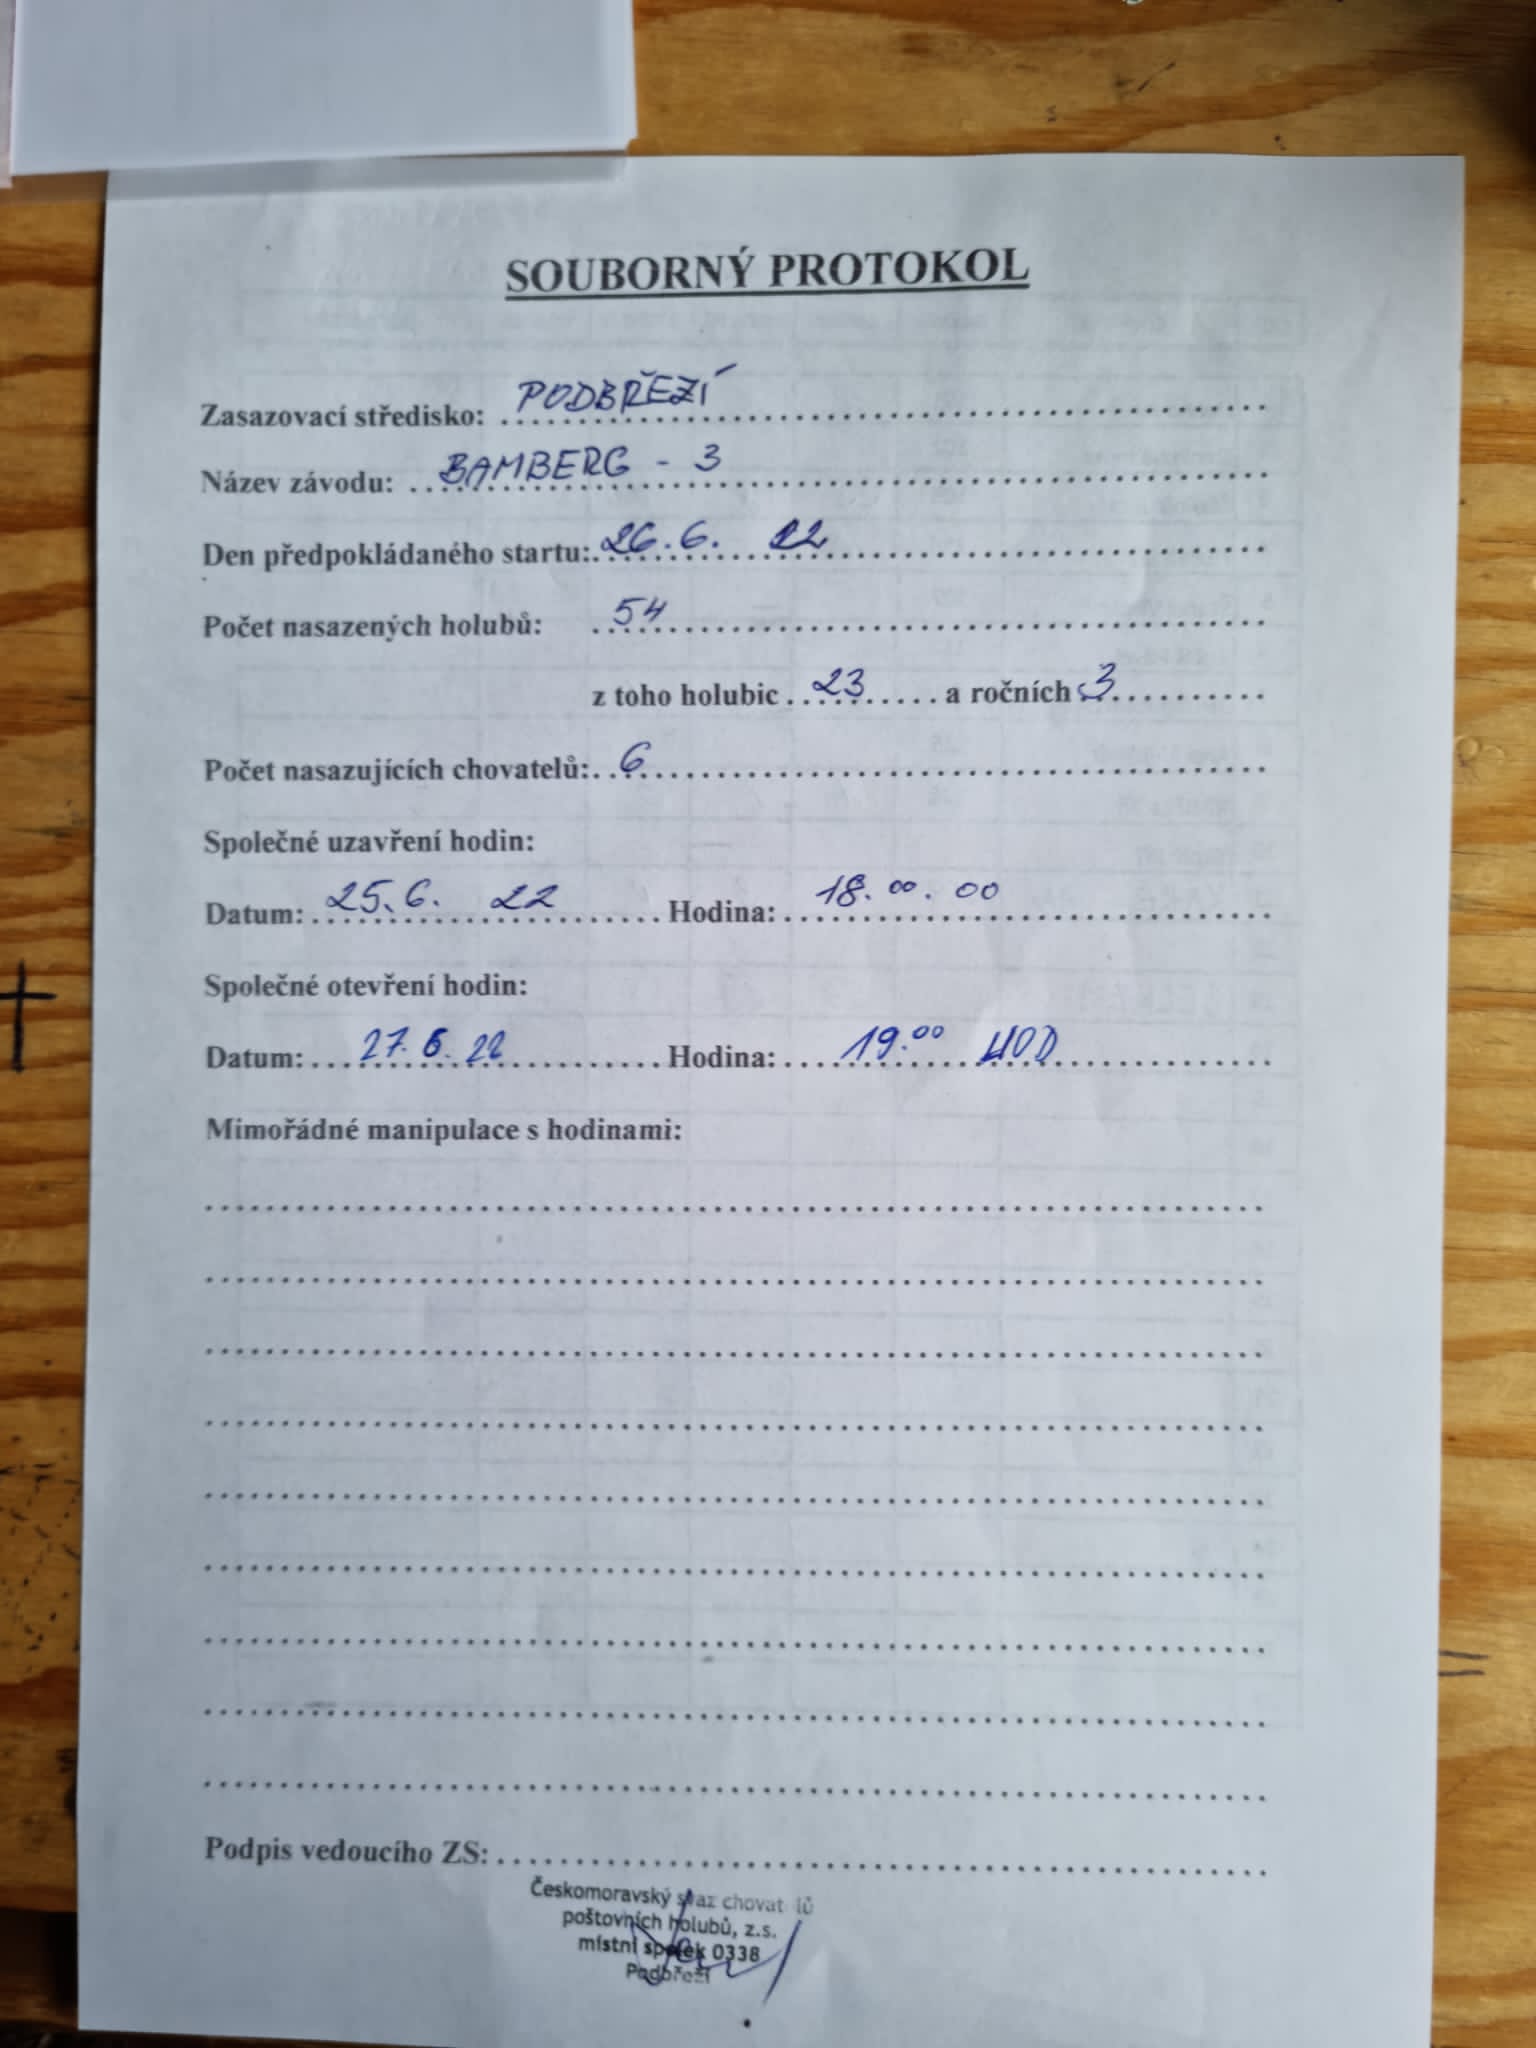 SOUBORNÝ PROTOKOL
Zasazovací středisko: PODBŘEZÍ
Název závodu: BAMBERG - 3
Den předpokládaného startu: 26.6. 22
Počet nasazených holubů: 54
z toho holubic 23 a ročních 3
Počet nasazujících chovatelů: 6
Společné uzavření hodin:
Datum: 25.6. 22 Hodina: 18.00.00
Společné otevření hodin:
Datum: 27.6.22 Hodina: 19.00 HOD
Mimořádné manipulace s hodinami:
Podpis vedoucího ZS:
Českomoravský svaz chovatelů
poštovních holubů, z.s.
místní spolek 0338
Podbřezí